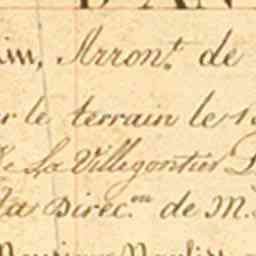 D'AN
im, Arron.t de
r le terrain le 1
de La Villegontier
la Direc.on de M.